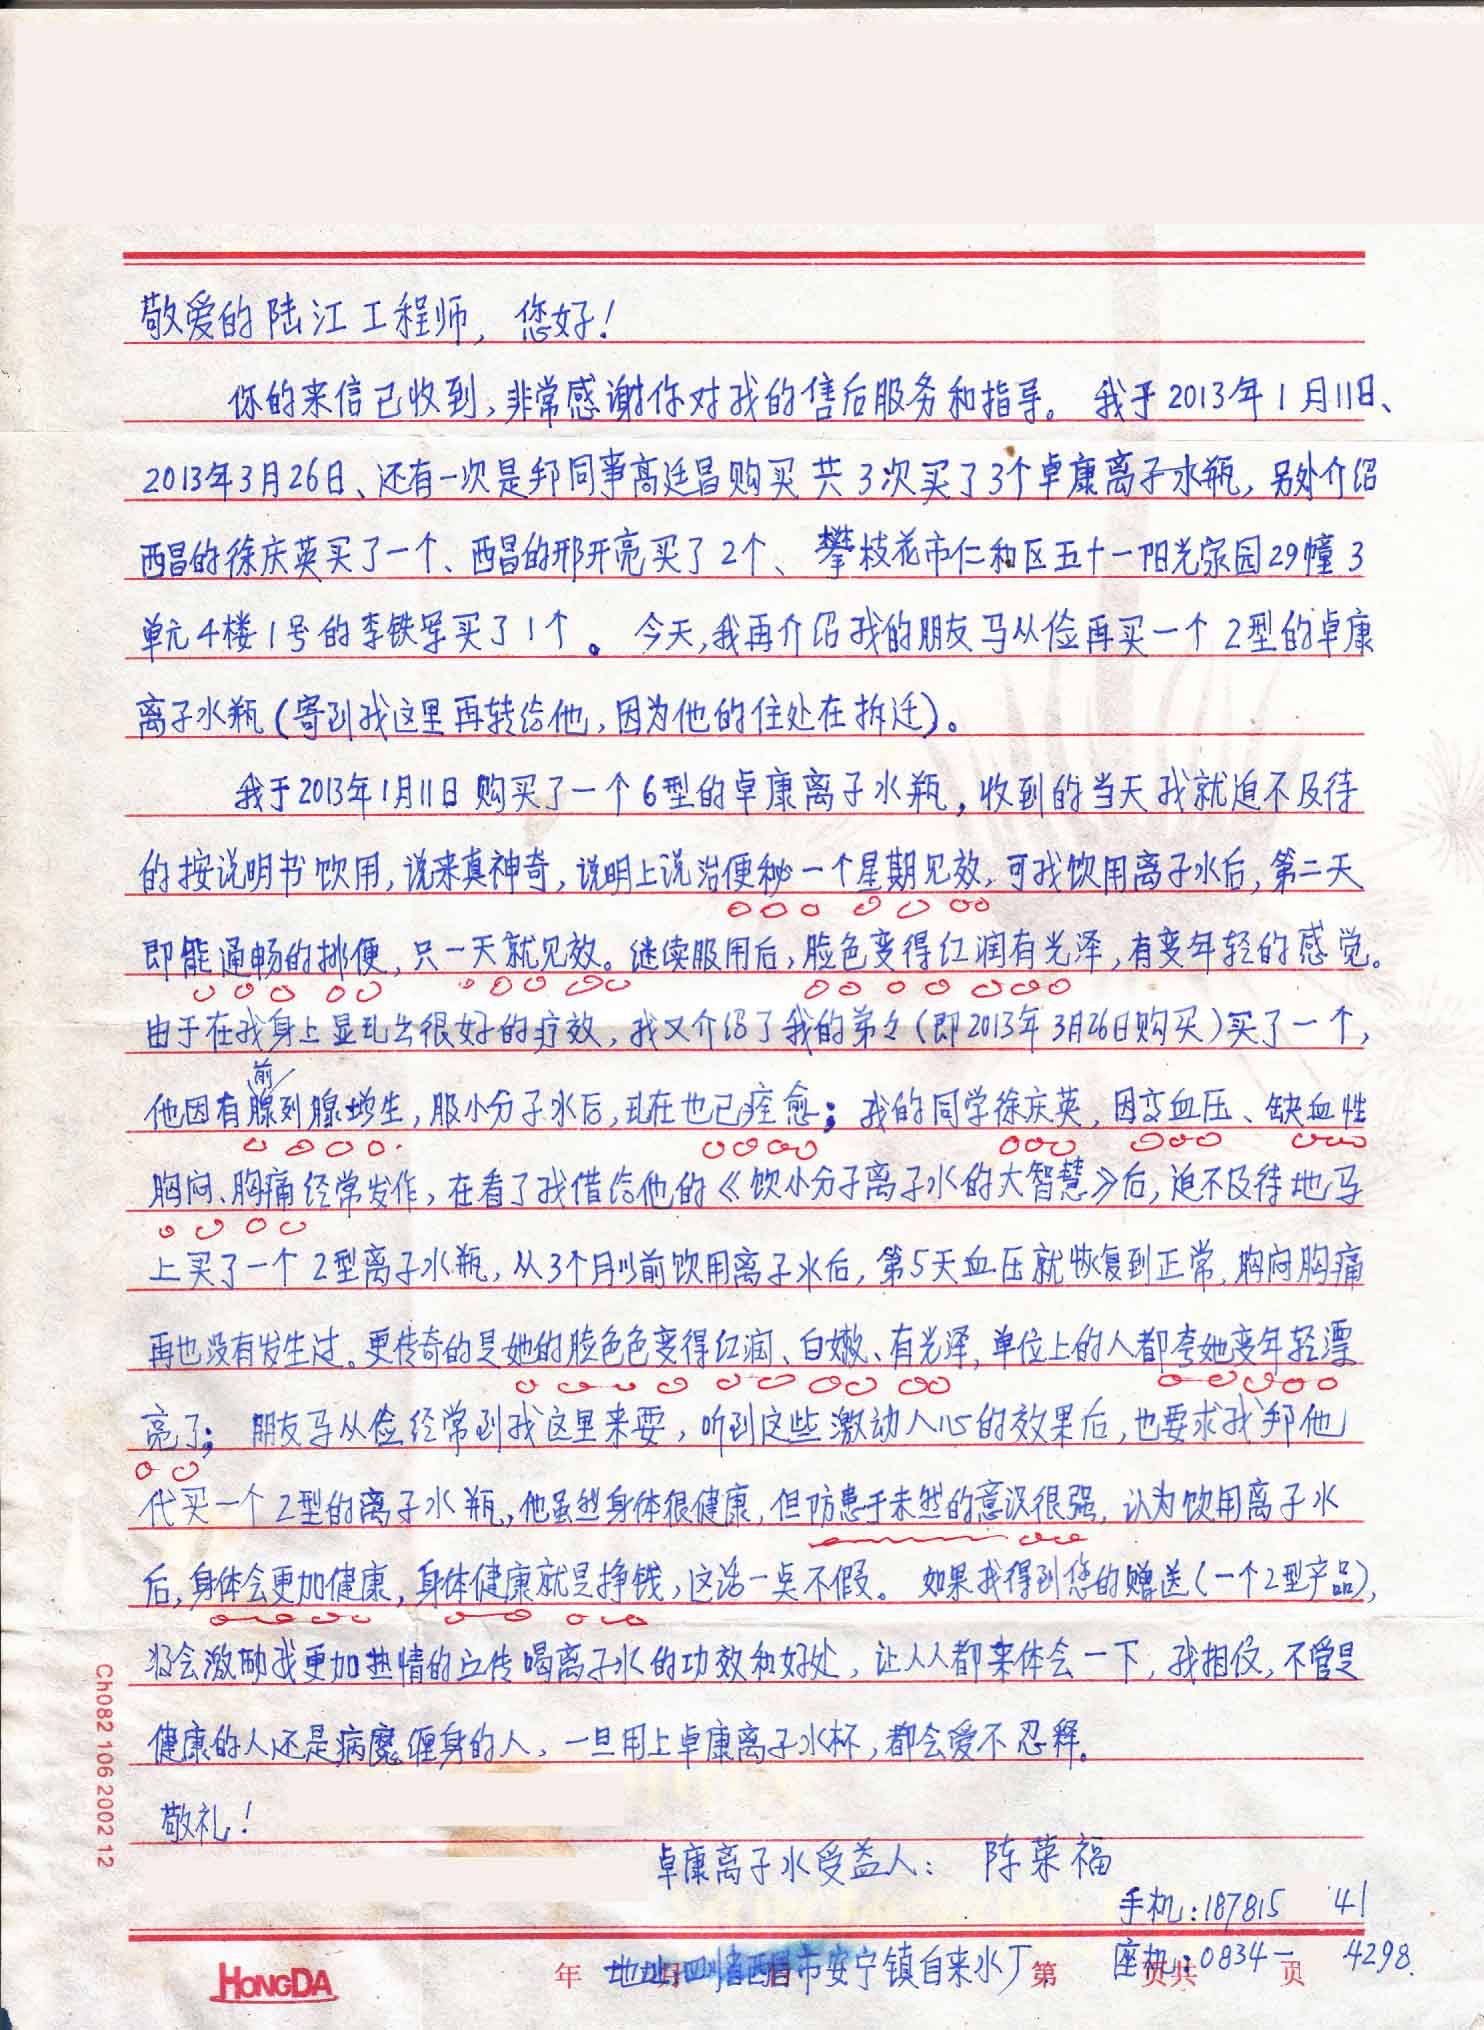 敬爱的陆江工程师，您好！
你的来信已收到，非常感谢你对我的售后服务和指导。我于2013年1月11日、
2013年3月26日、还有一次是邦同事高廷昌购买共3次买了3个卓康离子水瓶，另处介绍
西昌的徐庆英买了一个、西昌的邢开亮买了2个、攀枝花市仁和区五十一阳光家园29幢3
单元4楼1号的李铁军买了1个。今天，我再介绍我的朋友马从俭再买一个2型的卓康
离子水瓶(寄到我这里再转给他，因为他的住处在拆迁)。
我于2013年1月11日购买了一个6型的卓康离子水瓶，收到的当天我就迫不及待
的按说明书饮用，说来真神奇，说明上说治便秘一个星期见效，可我饮用离子水后，第二天
即能通畅的排便，只一天就见效。继续服用后，脸色变得红润有光泽，有变年轻的感觉。
由于在我身上显现出很好的疗效，我又介绍了我的弟々(即2013年3月26日购买)买了一个，
他因有前腺列腺增生，服小分子水后，现在也已痊愈；我的同学徐庆英，因高血压、缺血性
胸闷、胸痛经常发作，在看了我借给他的《饮小分子离子水的大智慧》后，迫不及待地马
上买了一个2型离子水瓶，从3个月以前饮用离子水后，第5天血压就恢复到正常，胸闷胸痛
再也没有发生过。更传奇的是她的脸色色变得红润、白嫩、有光泽，单位上的人都夸她变年轻漂
亮了；朋友马从俭经常到我这里来耍，听到这些激动人心的效果后，也要求我邦他
代买一个2型的离子水瓶，他虽然身体很健康，但防患于未然的意识很强，认为饮用离子水
后，身体会更加健康，身体健康就是挣钱，这话一点不假。如果我得到您的赠送(一个2型产品)，
将会激励我更加热情的宣传喝离子水的功效和好处，让人人都来体会一下，我相信，不管是
健康的人还是病魔缠身的人，一旦用上卓康离子水杯，都会爱不忍释。
敬礼！
卓康离子水受益人：陈荣福
手机：187815 41
座机：0834- 4298.
地址：四川省西昌市安宁镇自来水厂
HONGDA 年 月 日 第 页共 页
Ch082 106 2002 12